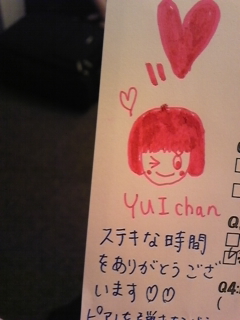 YUI chan
ステキな時間
をありがとうござ
います♡♡
Q
Q
Q4:
(